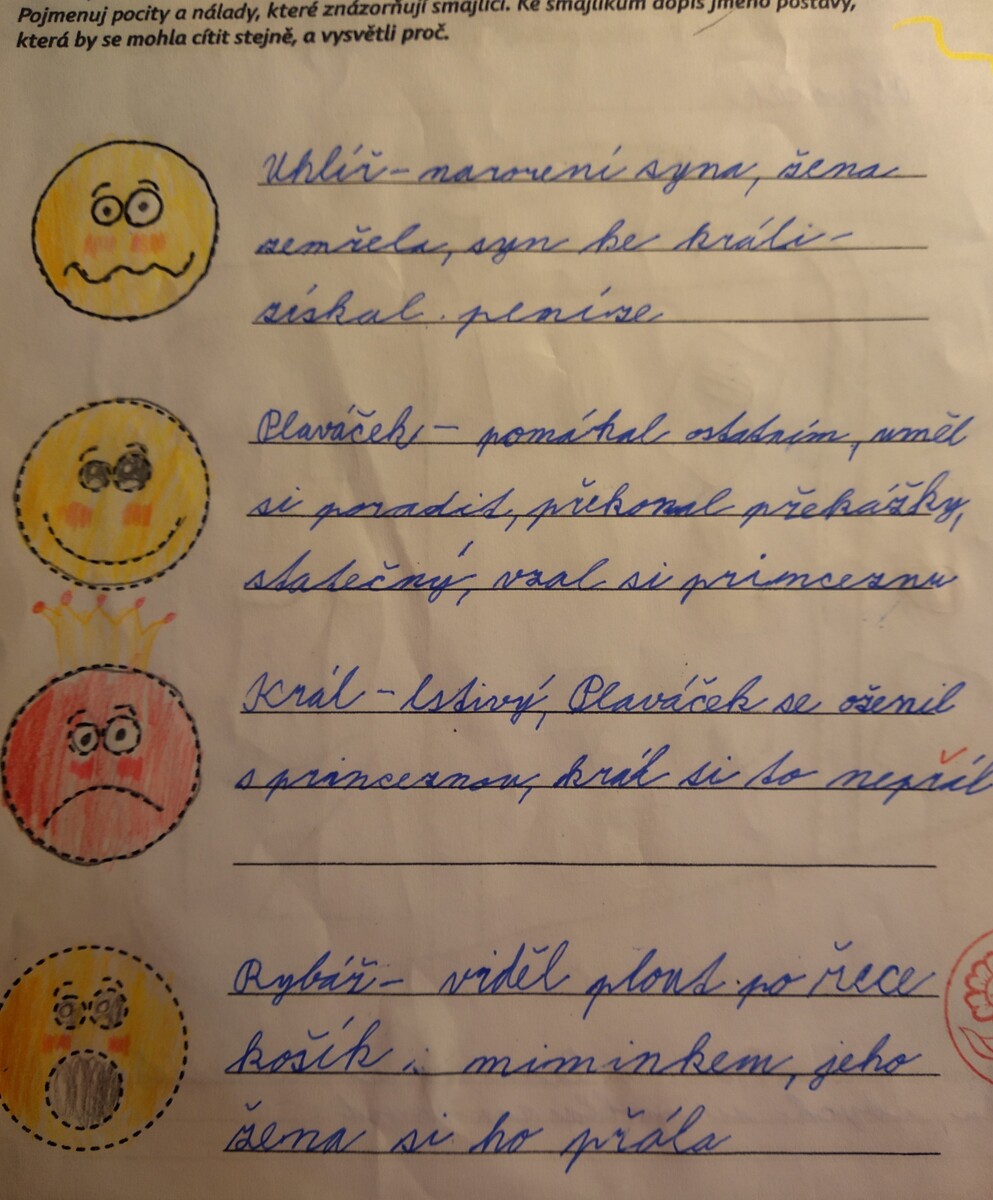 Pojmenuj pocity a nálady, které znázorňují smajlíci. Ke smajlíkům dopiš jméno postavy,
která by se mohla cítit stejně, a vysvětli proč.
Uhlíř – narození syna, žena
zemřela, syn ke králi –
získal peníze
Plaváček – pomáhal ostatním, uměl
si poradit, překonal překážky,
statečný, vzal si princeznu
Král – lstivý, Plaváček se oženil
s princeznou, král si to nepřál
Rybář – viděl plout po řece
košík s miminkem, jeho
žena si ho přála